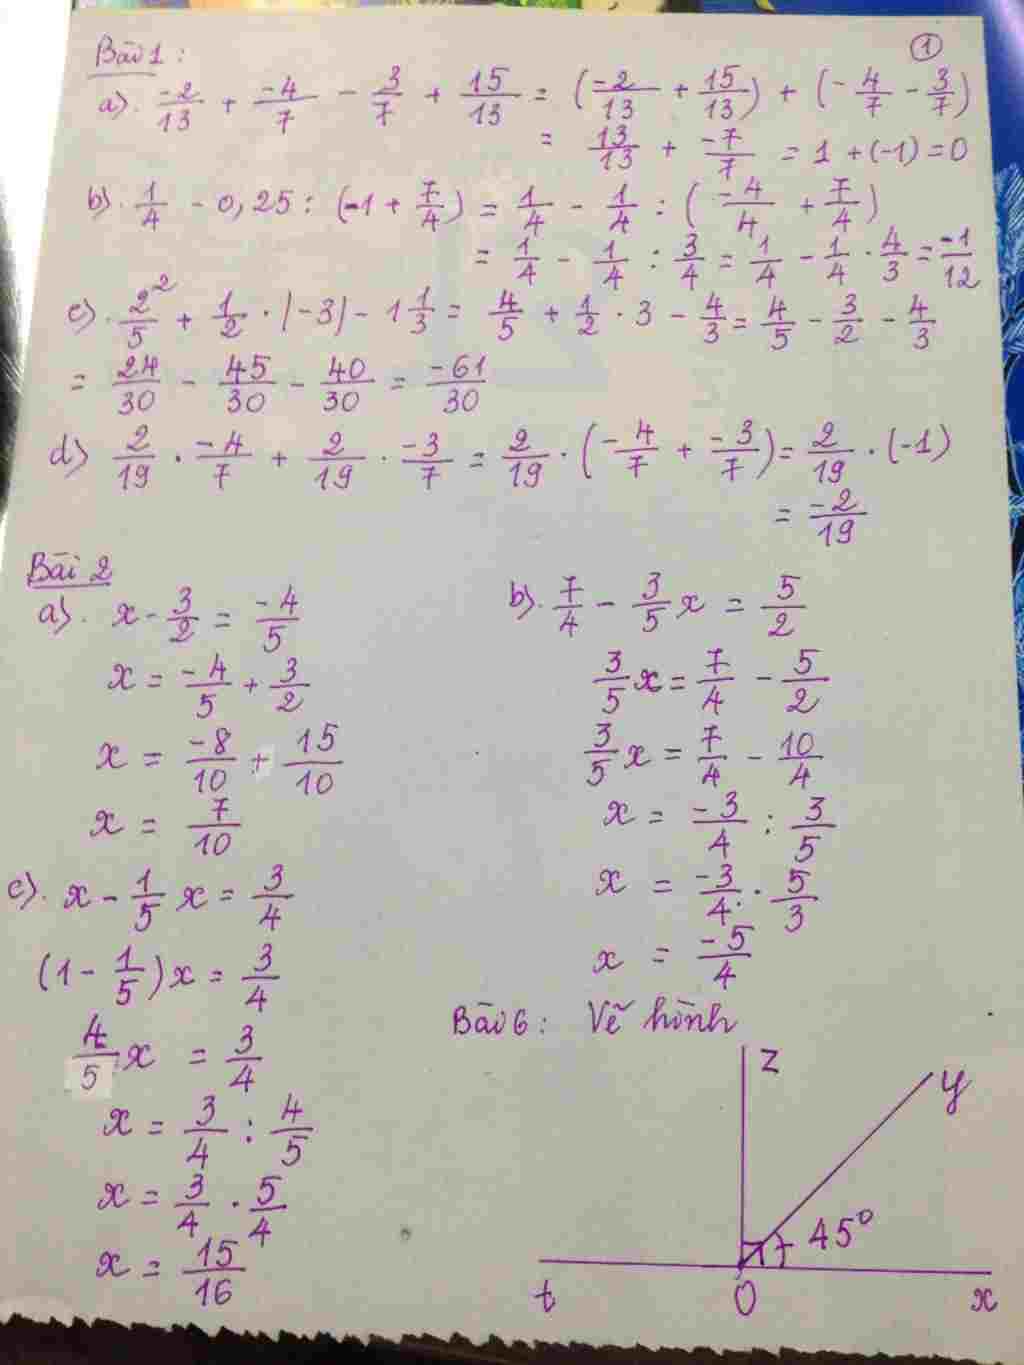 Bài 1 :
①
a). -2/13 + -4/7 - 3/7 + 15/13 = (-2/13 + 15/13) + (-4/7 - 3/7)
= 13/13 + -7/7 = 1 + (-1) = 0
b). 1/4 - 0,25 : (-1 + 7/4) = 1/4 - 1/4 : (-4/4 + 7/4)
= 1/4 - 1/4 : 3/4 = 1/4 - 1/4 · 4/3 = -1/12
c). 2²/5 + 1/2 · |-3| - 1 1/3 = 4/5 + 1/2 · 3 - 4/3 = 4/5 - 3/2 - 4/3
= 24/30 - 45/30 - 40/30 = -61/30
d) 2/19 · -4/7 + 2/19 · -3/7 = 2/19 · (-4/7 + -3/7) = 2/19 · (-1)
= -2/19
Bài 2
a). x - 3/2 = -4/5
x = -4/5 + 3/2
x = -8/10 + 15/10
x = 7/10
b). 7/4 - 3/5 x = 5/2
3/5 x = 7/4 - 5/2
3/5 x = 7/4 - 10/4
x = -3/4 : 3/5
x = -3/4 · 5/3
x = -5/4
c). x - 1/5 x = 3/4
(1 - 1/5) x = 3/4
4/5 x = 3/4
x = 3/4 : 4/5
x = 3/4 · 5/4
x = 15/16
Bài 6 : Vẽ hình
z
y
45°
t O x